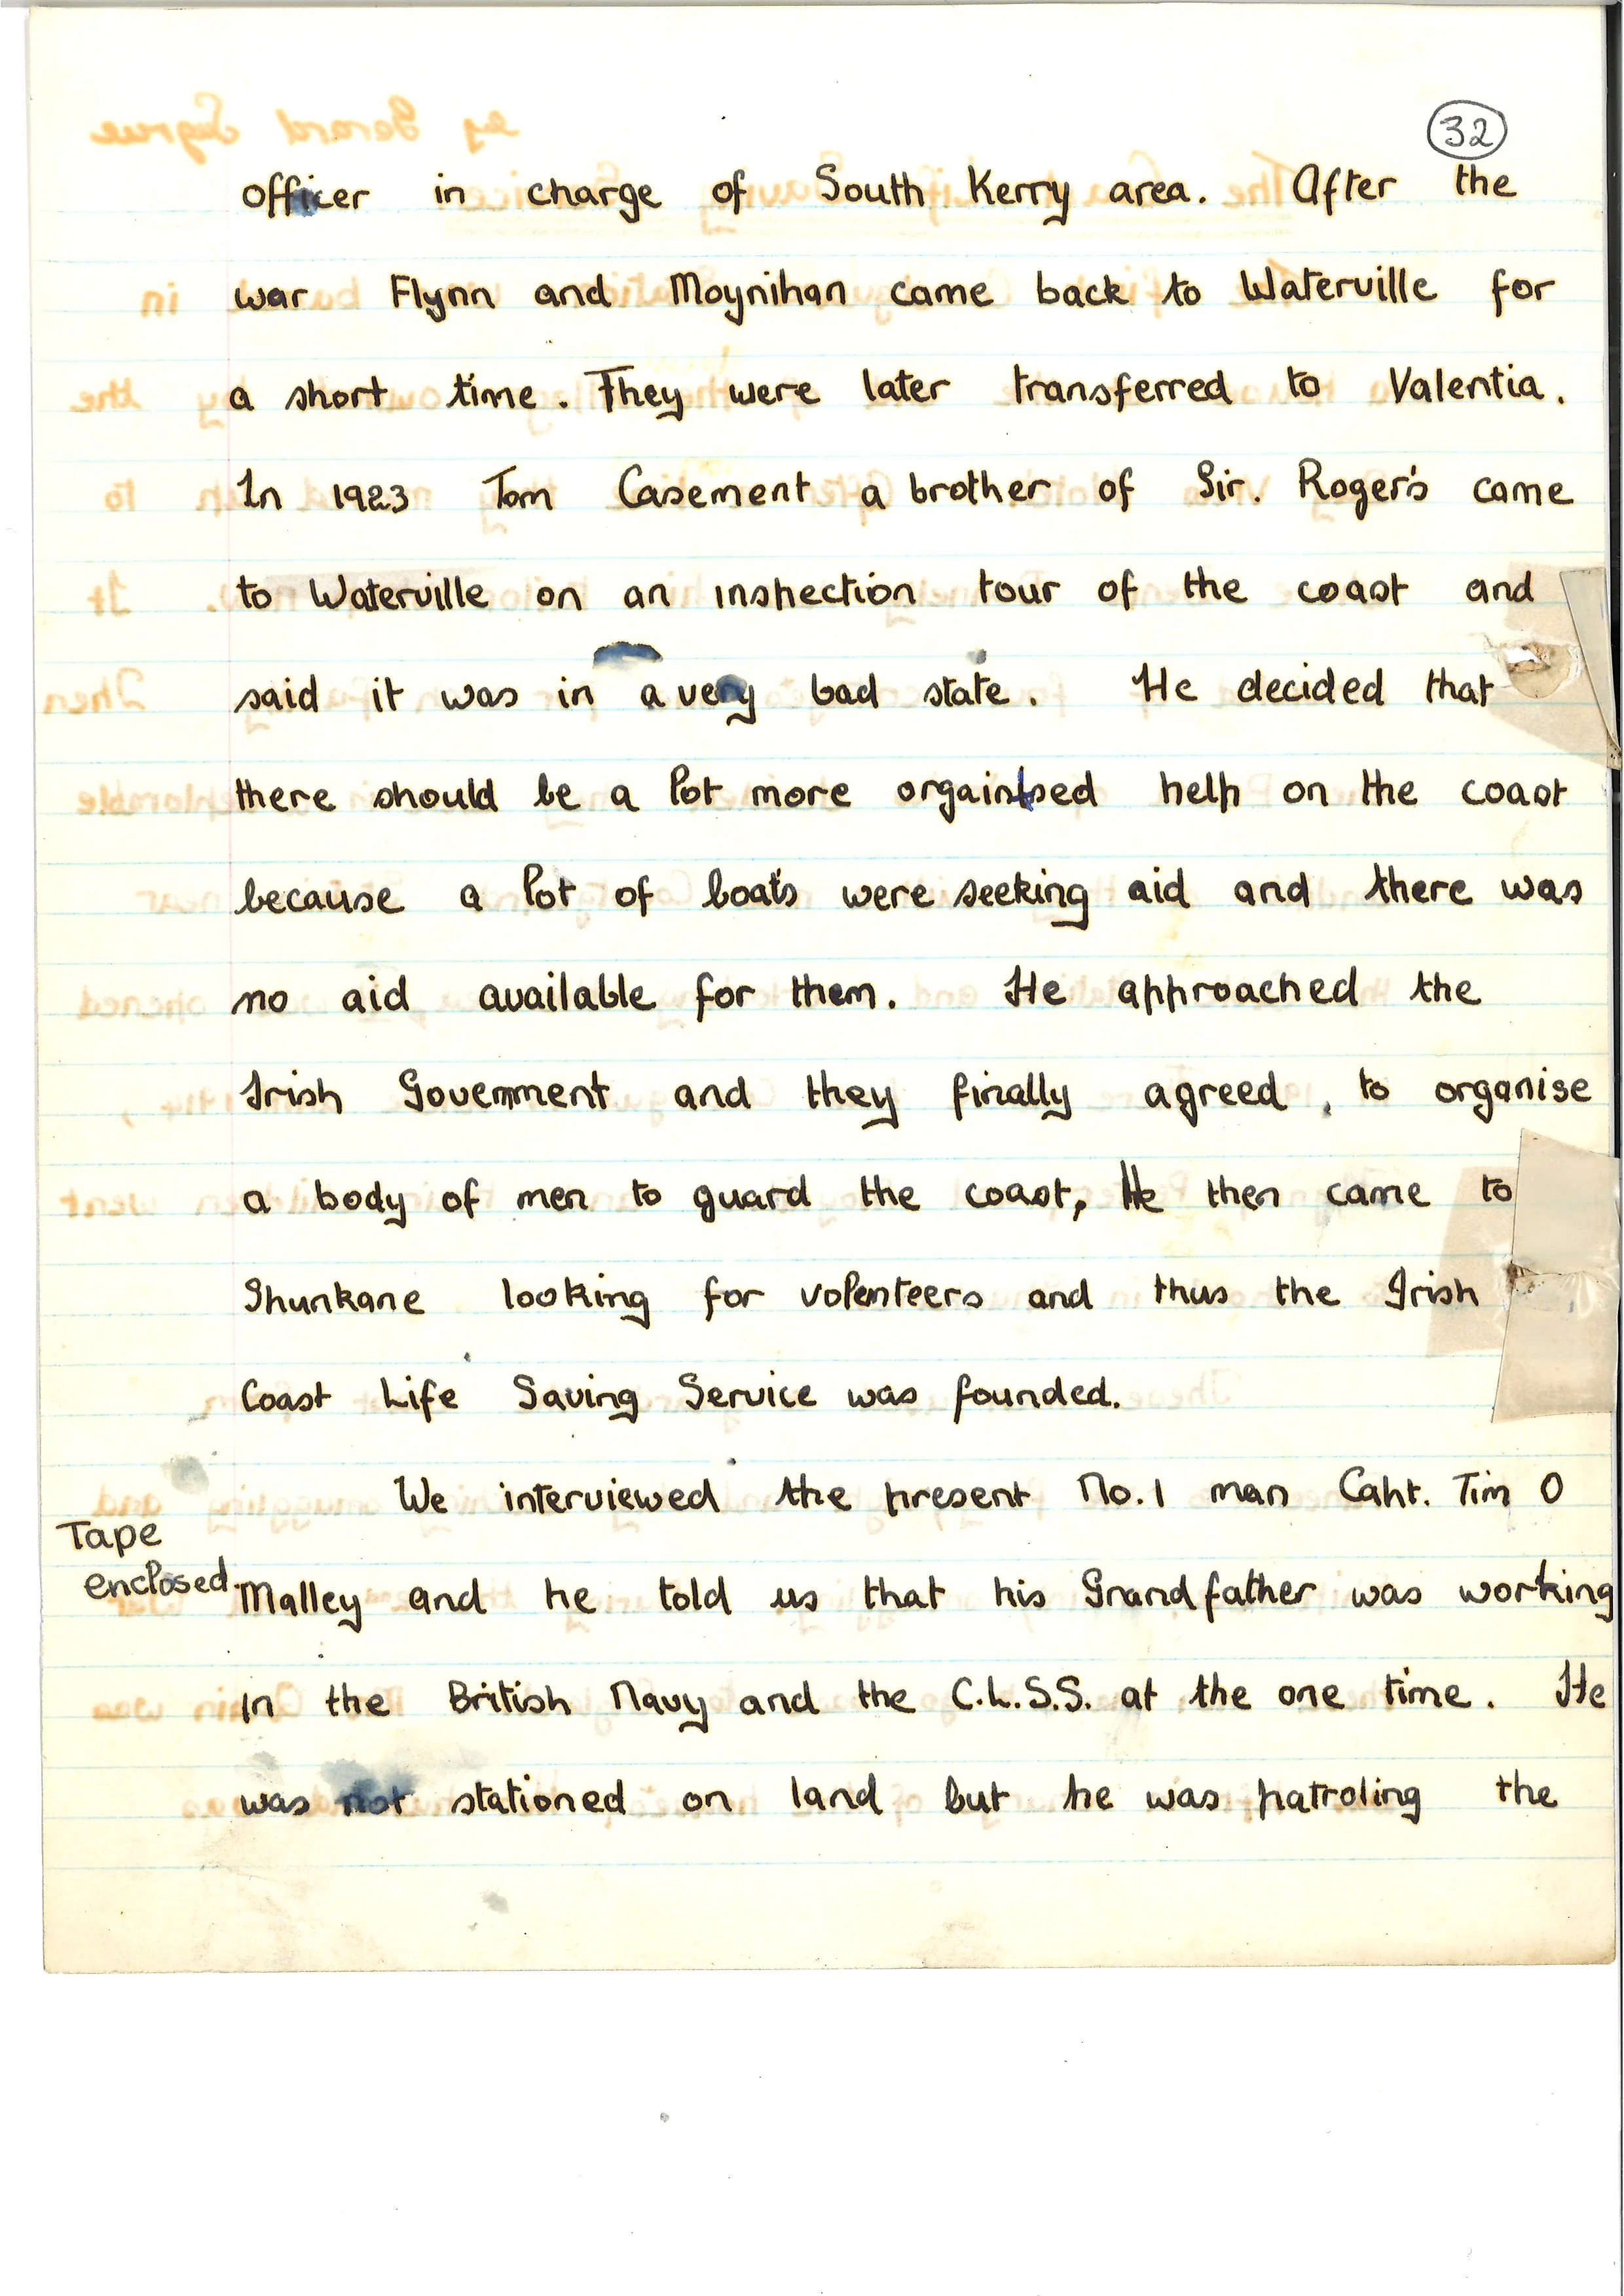 32
officer in charge of South Kerry area. After the
war Flynn and Moynihan came back to Waterville for
a short time. They were later transferred to Valentia.
In 1923 Tom Casement a brother of Sir. Roger's came
to Waterville on an inspection tour of the coast and
said it was in a very bad state. He decided that
there should be a lot more orgainised help on the coast
because a lot of boats were seeking aid and there was
no aid available for them. He approached the
Irish Government and they finally agreed, to organise
a body of men to guard the coast, He then came to
Spunkane looking for volenteers and thus the Irish
Coast Life Saving Service was founded.
We interviewed the present No.1 man Capt. Tim O
Tape
enclosed.
Malley and he told us that his Grandfather was working
in the British Navy and the C.L.S.S. at the one time. He
was not stationed on land but he was patroling the